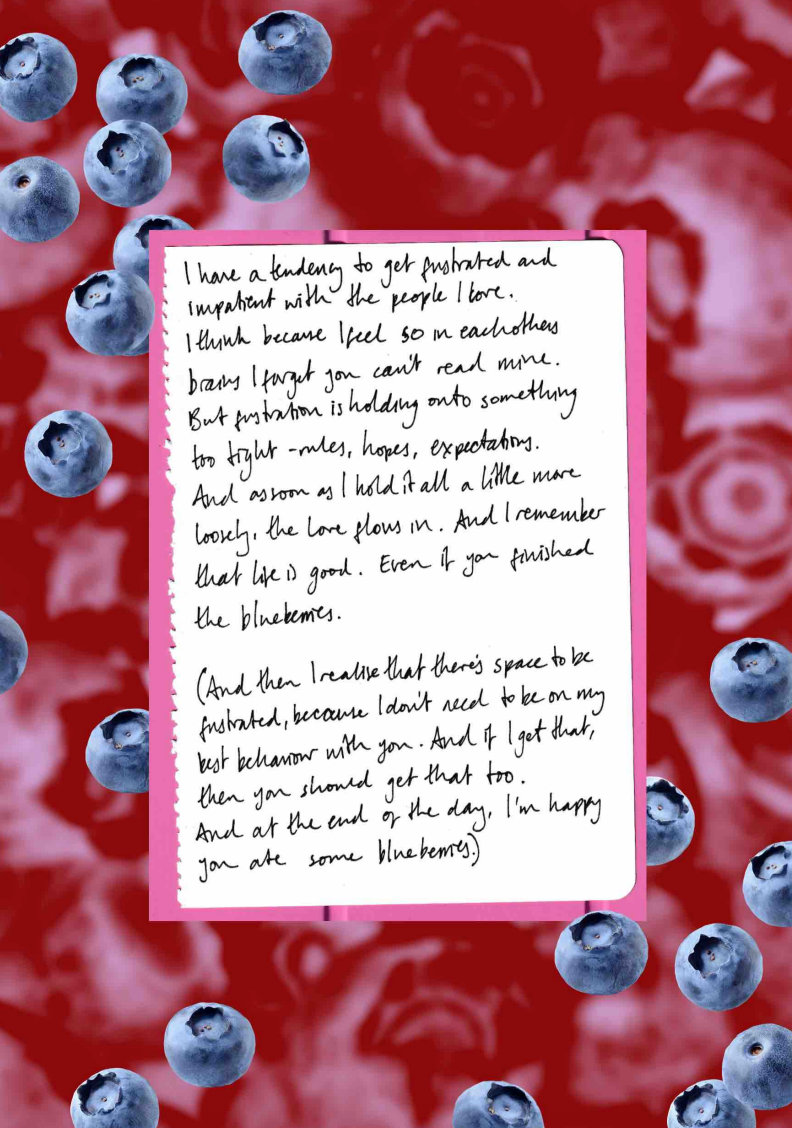 I have a tendency to get frustrated and
impatient with the people I love.
I think because I feel so in eachothers
brains I forget you can't read mine.
But frustration is holding onto something
too tight - rules, hopes, expectations.
And as soon as I hold it all a little more
loosely, the love flows in. And I remember
that life is good. Even if you finished
the blueberries.
(And then I realise that there's space to be
frustrated, because I don't need to be on my
best behaviour with you. And if I get that,
then you should get that too.
And at the end of the day, I'm happy
you ate some blueberries.)